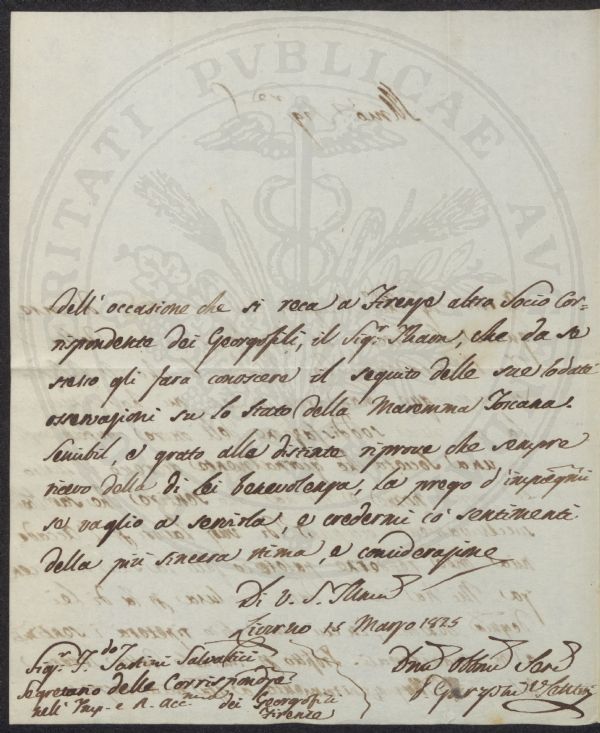 PROSPERITATI PVBLICAE AVGENDAE
dell' occasione che si reca a Firenze altro Socio Cor=
rispondente dei Georgofili, il Sigr. Thaon, che da se
stesso gli farà conoscere il seguito delle sue lodate
osservazioni su lo stato della Maremma Toscana.
Sensibil, e grato alle distinte riprove che sempre
ricevo della di Lei benevolenza, la prego d'impegnii
se vaglio a servirla, e credermi co' sentimenti
della più sincera stima, e considerazione
Di V. S. Illma
Livorno 15 Marzo 1825
Sigr. F.do Tartini Salvatici
Segretario delle Corrispondze
nell' Imp. e R. Accmia dei Georgofili
Firenze